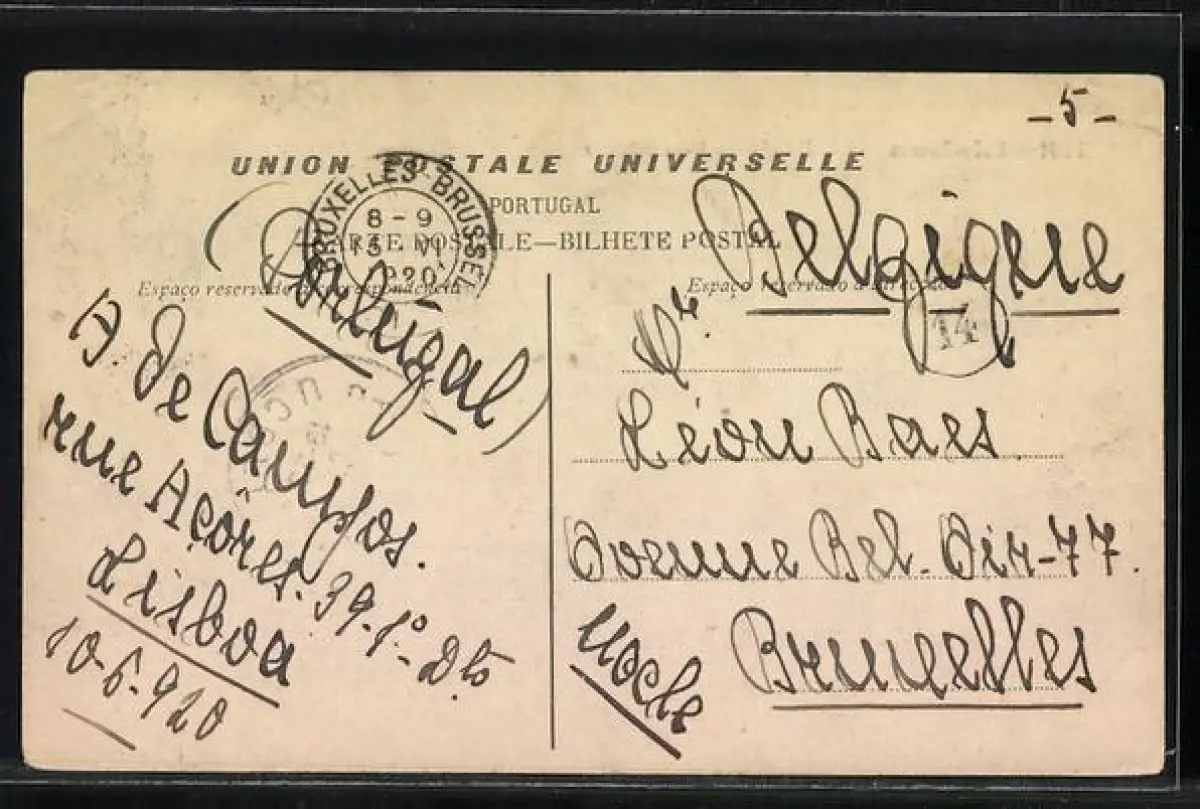 - 5 -
UNION POSTALE UNIVERSELLE
PORTUGAL
CARTE POSTALE—BILHETE POSTAL
Espaço reservado á correspondencia
Espaço reservado á direcção
BRUXELLES-BRUSSEL
8-9
15 VI
1920
(Portugal)
A. de Campos.
rue Açôres. 39-1º-Dto
Lisboa
10-6-920
Belgique
14
Mr.
Léon Baes.
Avenue Bel-Air-77.
Uccle
Bruxelles